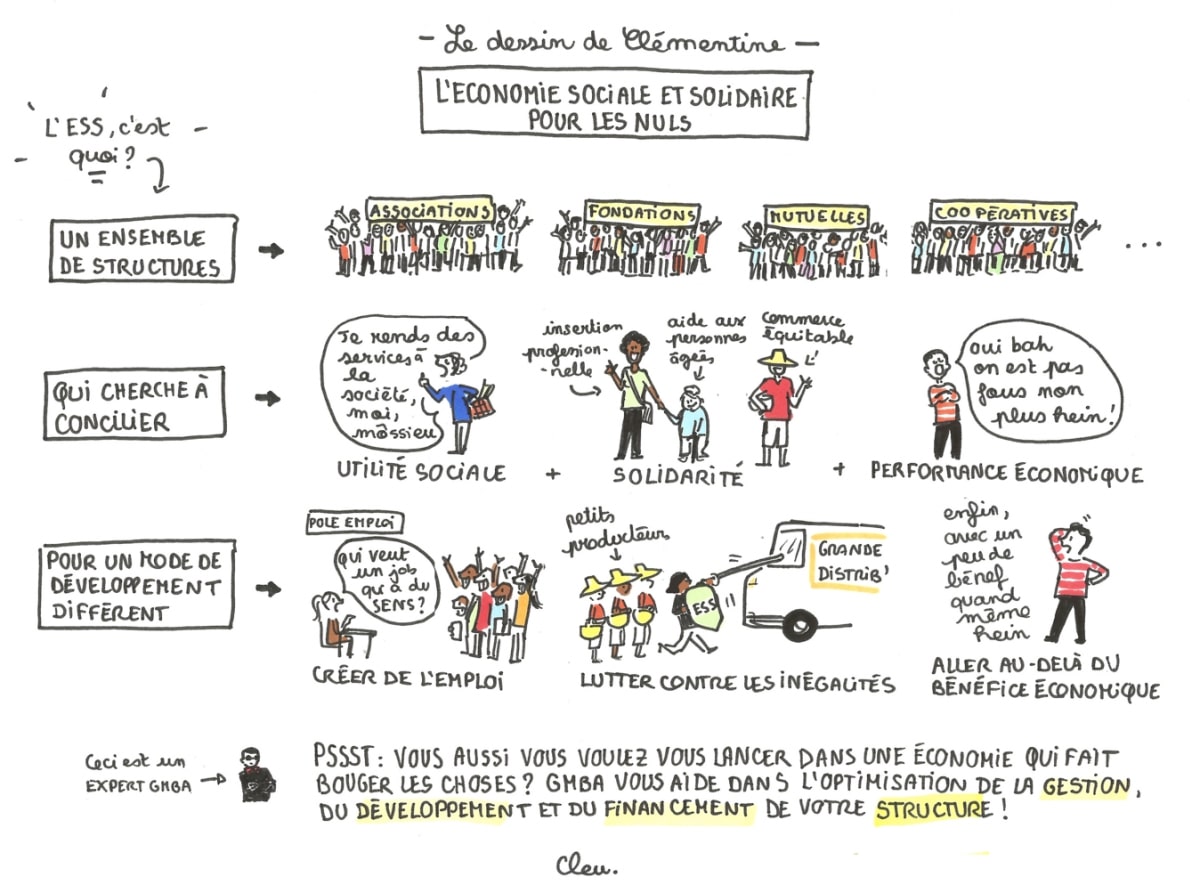 - Le dessin de Clémentine -
L'ECONOMIE SOCIALE ET SOLIDAIRE
POUR LES NULS
L'ESS, c'est
quoi ?
UN ENSEMBLE
DE STRUCTURES
ASSOCIATIONS
FONDATIONS
MUTUELLES
COOPÉRATIVES
...
QUI CHERCHE À
CONCILIER
Je rends des
services à
la
société,
moi,
môssieu
UTILITÉ SOCIALE
+
insertion
profession-
-nelle
aide aux
personnes
âgées
commerce
équitable
SOLIDARITÉ
+
oui bah
on est pas
fous non
plus hein !
PERFORMANCE ÉCONOMIQUE
POUR UN MODE DE
DÉVELOPPEMENT
DIFFÉRENT
POLE EMPLOI
qui veut
un job
qui a du
SENS ?
CRÉER DE L'EMPLOI
petits
producteurs
ESS
GRANDE
DISTRIB'
LUTTER CONTRE LES INÉGALITÉS
enfin,
avec un
peu de
bénef
quand
même
hein
ALLER AU-DELÀ DU
BÉNÉFICE ÉCONOMIQUE
Ceci est un
EXPERT GMBA
PSSST : VOUS AUSSI VOUS VOULEZ VOUS LANCER DANS UNE ÉCONOMIE QUI FAIT
BOUGER LES CHOSES ? GMBA VOUS AIDE DANS L'OPTIMISATION DE LA GESTION,
DU DÉVELOPPEMENT ET DU FINANCEMENT DE VOTRE STRUCTURE !
Clem.